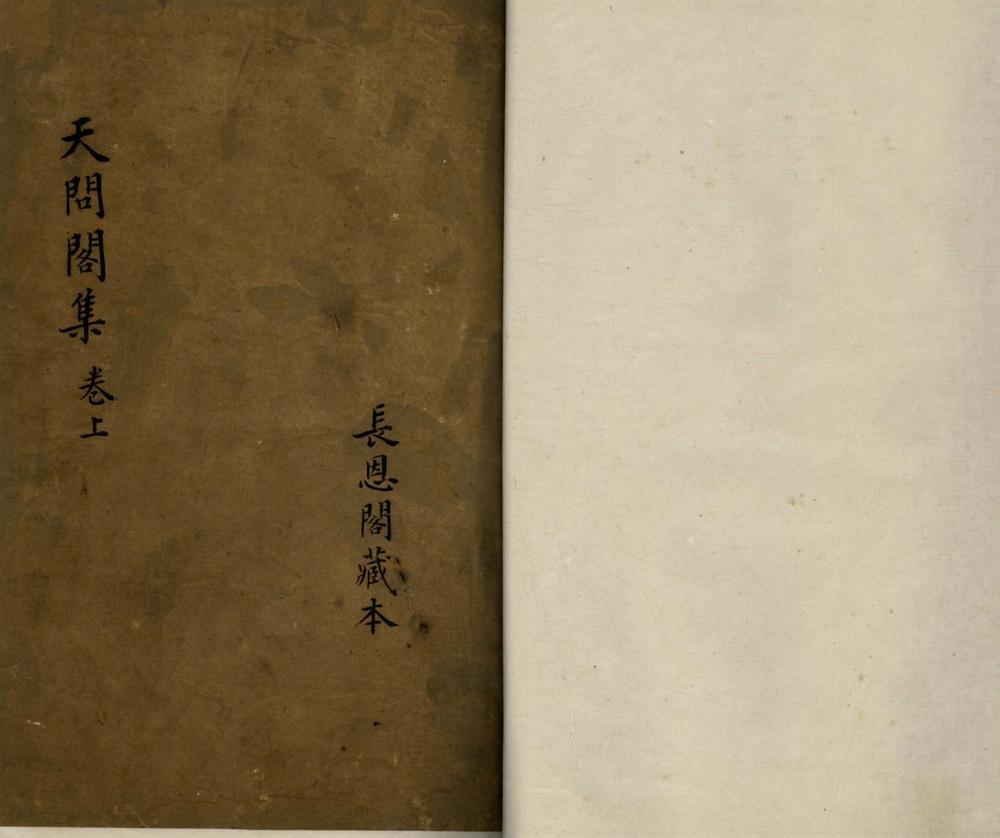 長恩閣藏本
天問閣集 卷上